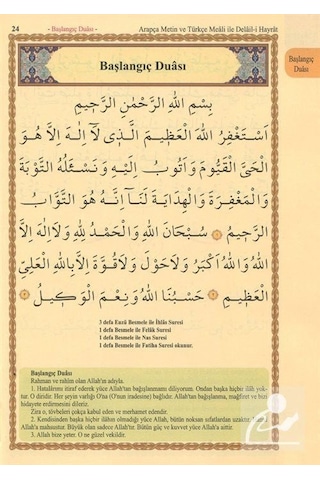 24
- Başlangıç Duâsı -
Arapça Metin ve Türkçe Meâli ile Delâil-i Hayrât
Başlangıç
Duâsı
Başlangıç Duâsı
بِسْمِ اللهِ الرَّحْمٰنِ الرَّحِيمِ
اَسْتَغْفِرُ اللهَ الْعَظِيمَ الَّذِى لَآ اِلٰهَ اِلَّا هُوَ
الْحَىَّ الْقَيُّومَ وَاَتُوبُ اِلَيْهِ وَنَسْئَلُهُ التَّوْبَةَ
وَالْمَغْفِرَةَ وَالْهِدَايَةَ لَنَا اِنَّهُ هُوَ التَّوَّابُ
الرَّحِيمُ سُبْحَانَ اللهِ وَالْحَمْدُ لِلّٰهِ وَلَا اِلٰهَ اِلَّا
اللهُ وَاللهُ اَكْبَرُ وَلَاحَوْلَ وَلَاقُوَّةَ اِلَّا بِاللهِ الْعَلِىِّ
الْعَظِيمِ حَسْبُنَا اللهُ وَنِعْمَ الْوَكِيلُ
3 defa Euzü Besmele ile İhlâs Suresi
1 defa Besmele ile Felâk Suresi
1 defa Besmele ile Nas Suresi
1 defa Besmele ile Fatiha Suresi okunur.
Başlangıç Duâsı
Rahman ve rahim olan Allah'ın adıyla.
1. Hatalarımı itiraf ederek yüce Allah'tan bağışlanmamı diliyorum. Ondan başka hiçbir ilâh yok-
tur. O diridir. Her şeyin varlığı O'na (O'nun iradesine) bağlıdır. Allah'tan bağışlanma, mağfiret ve bizi
hidayete erdirmesini dileriz.
Zira o, tövbeleri çokça kabul eden ve merhamet edendir.
2. Kendisinden başka hiçbir ilâhın olmadığı yüce Allah, bütün noksan sıfatlardan uzaktır.
Allah'a mahsustur. Büyük olan sadece Allah'tır. Bütün güç ve kuvvet yüce Allah'a aittir.
3. Allah bize yeter. O ne güzel vekildir.